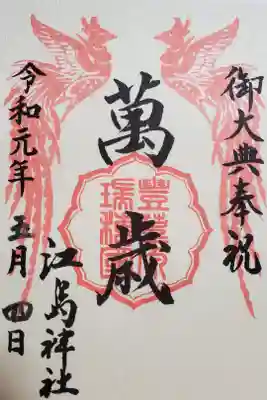 御大典奉祝
萬歳
豐葦原
瑞穂国
江島神社
令和元年 五月 四日